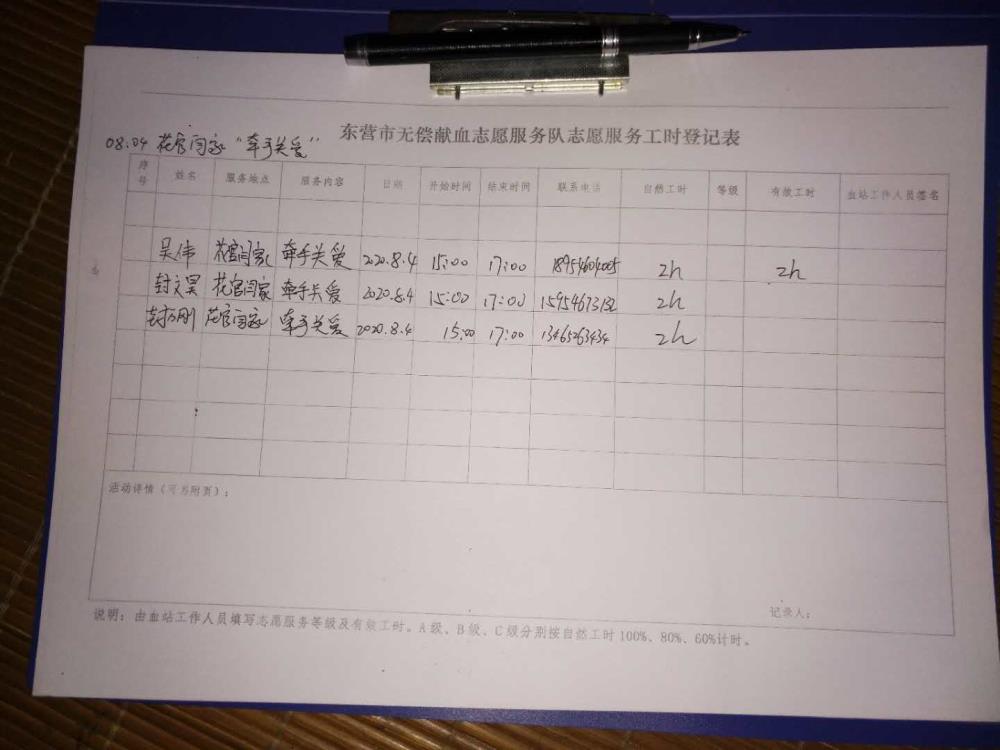 东营市无偿献血志愿服务队志愿服务工时登记表
08.04 花官闫家 "牵手关爱"
序号 姓名 服务地点 服务内容 日期 开始时间 结束时间 联系电话 自然工时 等级 有效工时 血站工作人员签名
吴伟 花官闫家 牵手关爱 2020.8.4 15:00 17:00 18954604005 2h 2h
封文昊 花官闫家 牵手关爱 2020.8.4 15:00 17:00 15954673132 2h
封万刚 花官闫家 牵手关爱 2020.8.4 15:00 17:00 13465263434 2h
活动详情（可另附页）：
记录人：
说明：由血站工作人员填写志愿服务等级及有效工时。A级、B级、C级分别按自然工时100%、80%、60%计时。